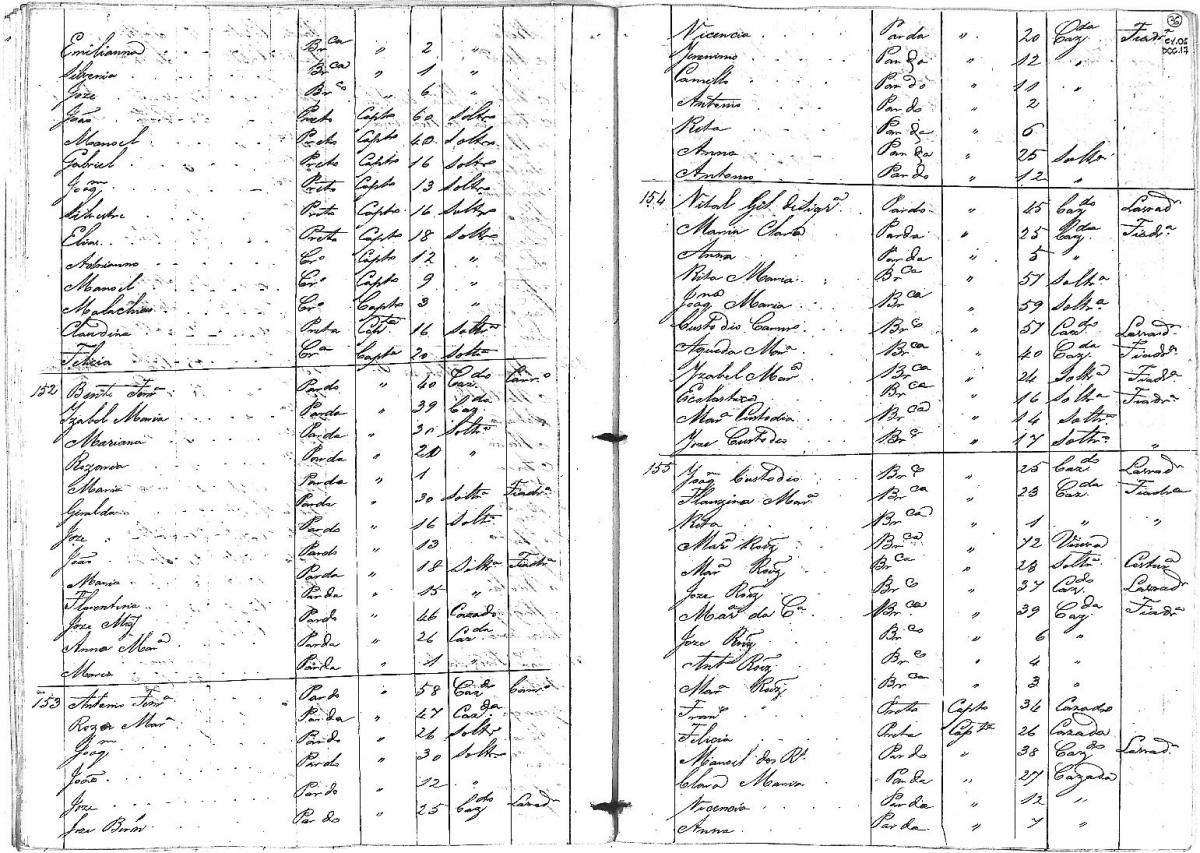 Emilianna Br.ca " 2 "
Silveria Br.ca " 1 "
Joze Br.co " 6 "
João Preto Capto 60 Soltro
Manoel Preto Capto 40 Soltro
Gabriel Preto Capto 16 Soltro
Joaq.m Preto Capto 13 Soltro
Silvestre Preto Capto 16 Soltro
Elias Preto Capto 18 Soltro
Adrianno Cr.o Capto 12 "
Manoel Cr.o Capto 9 "
Malachias Cr.o Capto 3 "
Claudina Preta Cap.ta 16 Solt.ra
Felizia Cr.a Capta 20 Solt.ra
152 Bento Ferr.a Pardo " 40 Caz.do Carr.o
Izabel Maria Parda " 39 Caz.da
Mariana Parda " Solt.ra
Rozanda Parda " "
Maria Parda " 1
Geralda Parda " 30 Solt.ra Fiadr.a
Joze Pardo " 16 Solt.ro
João Pardo " 13
Maria Parda " 18 Solt.ra Fiadr.a
Florentina Parda " 15 "
Joze Pardo " 46 Cazado
Anna Mar.a Parda " 26 Caz.da
Maria Parda " 1 "
153 Antonio Ferr.a Pardo " 58 Caz.do Carr.o
Roza Mar.a Parda " 47 Caz.da
Joaq.m Pardo " 26 Soltro
João Pardo " 30 Soltro
Joze Pardo " 12 "
Joze Pardo " 25 Caz.do Lavrad.r
36
CX.06
DOC.17
Vicencia Parda " 20 Caz.da Fiadr.a
Jeronimo Pardo " 12 "
Camillo Pardo " 11 "
Antonio Pardo " 2
Rita Parda " 6
Anna Parda " 25 Soltr.a
Antonio Pardo " 12 "
154 Vital Gil Pardo " 45 Caz.do Lavrad.r
Maria Clara Parda " 25 Caz.da Fiadr.a
Anna Parda " 5 "
Rita Maria Br.ca " 57 Solt.ra
Joaq.na Maria Br.ca " 59 Solt.ra
Custodio Br.co " 57 Caz.do Lavrad.r
Agueda Mar.a Br.ca " 40 Caz.da Fiadr.a
Izabel Mar.a Br.ca " 24 Solt.ra Fiadr.a
Escolastica Br.ca " 16 Solt.ra Fiadr.a
Mar.a Custodia Br.ca " 14 Solt.ra
Joze Custodio Br.co " 17 Soltro "
155 Joaq.m Custodio Br.co " 25 Caz.do Lavrad.r
Mar.a Br.ca " 23 Caz.da Fiadr.a
Rita Br.ca " 1 " "
Mar.a Roiz Br.ca " 72 Viuva
Mar.a Roiz Br.ca " 23 Solt.ra
Joze Roiz Br.co " 37 Caz.do Lavrad.r
Mar.a da C.a Br.ca " 39 Caz.da Fiadr.a
Joze Roiz Br.co " 6 "
Ant.o Roiz Br.co " 4 "
Mar.a Roiz Br.ca " 3 "
Fran.co Preto Capto 34 Cazado
Felicia Preta Cap.ta 26 Cazada
Manoel dos R. Pardo " 38 Caz.do Lavrad.r
Clara Maria Parda " 27 Cazada
Vicencia Parda " 12 "
Anna Parda " 7 "